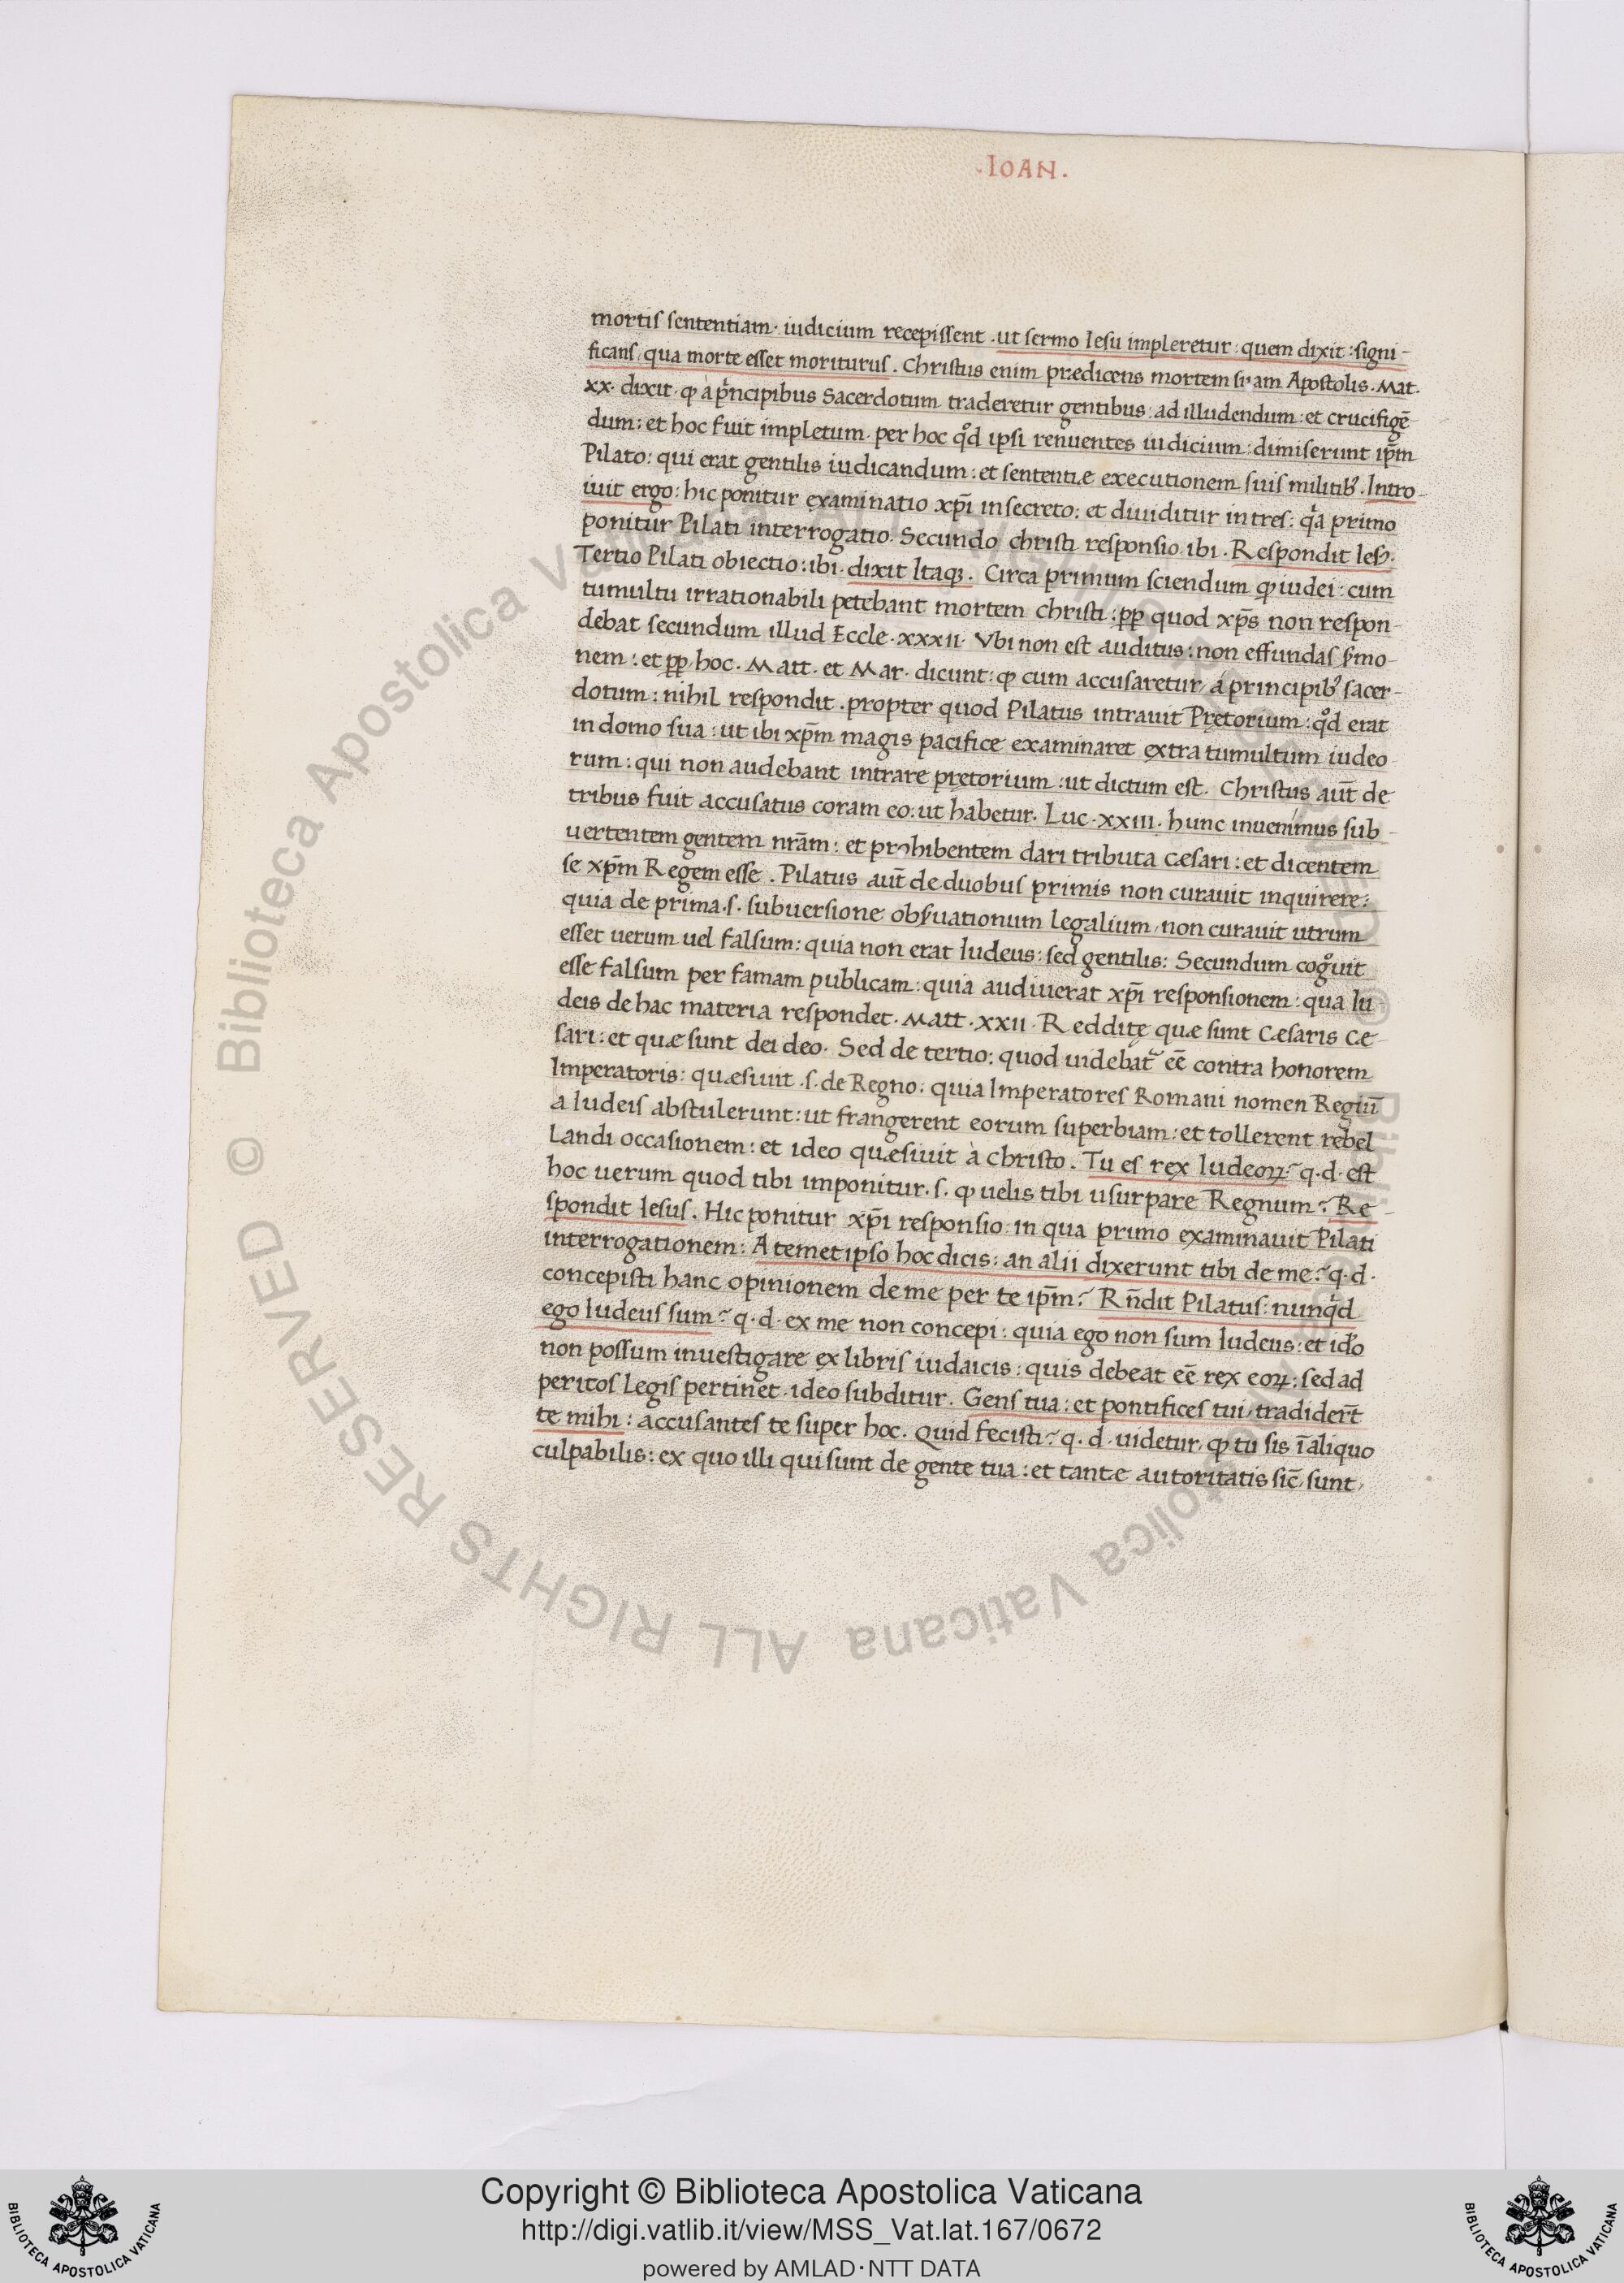 ·IOAN·
mortis sententiam· iudicium recepissent · ut sermo Iesu impleretur: quem dixit: signi-
ficans, qua morte esset moriturus. Christus enim prædicens mortem suam Apostolis. Mat.
xx· dixit· ꝙ à pͥncipibus Sacerdotum traderetur gentibus: ad illudendum: et crucifigē
dum: et hoc fuit impletum· per hoc qͦd ipsi renuentes iudicium: dimiserunt ip̄m
Pilato: qui erat gentilis iudicandum: et sententiæ executionem suis militibꝰ. Intro-
iuit ergo: hic ponitur examinatio xp̄i in secreto: et diuiditur in tres: qͥa primo
ponitur Pilati interrogatio. Secundo christi responsio ibi. Respondit Iesꝰ.
Tertio Pilati obiectio: ibi· dixit Itaqꝫ. Circa primum sciendum ꝙ iudei: cum
tumultu irrationabili petebant mortem christi: ꝓp quod xp̄s non respon-
debat secundum illud Eccle· xxxii· Vbi non est auditus: non effundas s̄mo-
nem: et ꝓp hoc. Matt. et Mar. dicunt: ꝙ cum accusaretur, a principibꝰ sacer-
dotum: nihil respondit. propter quod Pilatus intrauit Pretorium: qͦd erat
in domo sua: ut ibi xp̄m magis pacifice examinaret extra tumultum iudeo
rum: qui non audebant intrare pretorium: ut dictum est. Christus aut̄ de
tribus fuit accusatus coram eo: ut habetur. Luc. xxiii. hunc inuenimus sub-
uertentem gentem nr̄am: et prohibentem dari tributa Cæsari: et dicentem
se xp̄m Regem esse. Pilatus aut̄ de duobus primis non curauit inquirere:
quia de prima·s· subuersione obs̄uationum legalium, non curauit utrum
esset uerum uel falsum: quia non erat Iudeus: sed gentilis: Secundum cogͦuit
esse falsum per famam publicam: quia audiuerat xp̄i responsionem: qua Iu
deis de hac materia respondet. Matt. xxii. Reddite quæ sunt Cæsaris Ce
sari: et quæ sunt dei deo. Sed de tertio: quod uidebat᷑ eē contra honorem
Imperatoris: quæsiuit ·s· de Regno: quia Imperatores Romani nomen Regiū
a Iudeis abstulerunt: ut frangerent eorum superbiam: et tollerent rebel
landi occasionem: et ideo quæsiuit à christo. Tu es rex Iudeoꝝ? q·d· est
hoc uerum quod tibi imponitur· s· ꝙ uelis tibi usurpare Regnum? Re-
spondit Iesus. Hic ponitur xp̄i responsio: in qua primo examinauit Pilati
interrogationem: A temet ipso hoc dicis: an alii dixerunt tibi de me? q·d·
concepisti hanc opinionem de me per te ip̄m? Rn̄dit Pilatus: nunqͥd
ego Iudeus sum? q·d· ex me non concepi: quia ego non sum Iudeus: et idͦo
non possum inuestigare ex libris iudaicis: quis debeat eē rex eoꝝ: sed ad
peritos legis pertinet· ideo subditur. Gens tua: et pontifices tui, tradider̄t
te mihi: accusantes te super hoc. Quid fecisti? q·d· uidetur, ꝙ tu sis ī aliquo
culpabilis: ex quo illi qui sunt de gente tua: et tantæ autoritatis sic̄, sunt,
Copyright © Biblioteca Apostolica Vaticana
http://digi.vatlib.it/view/MSS_Vat.lat.167/0672
powered by AMLAD·NTT DATA
BIBLIOTECA APOSTOLICA VATICANA
BIBLIOTECA APOSTOLICA VATICANA
© Biblioteca Apostolica Vaticana ALL RIGHTS RESERVED © Biblioteca Apostolica Vaticana ALL RIGHTS RESERVED